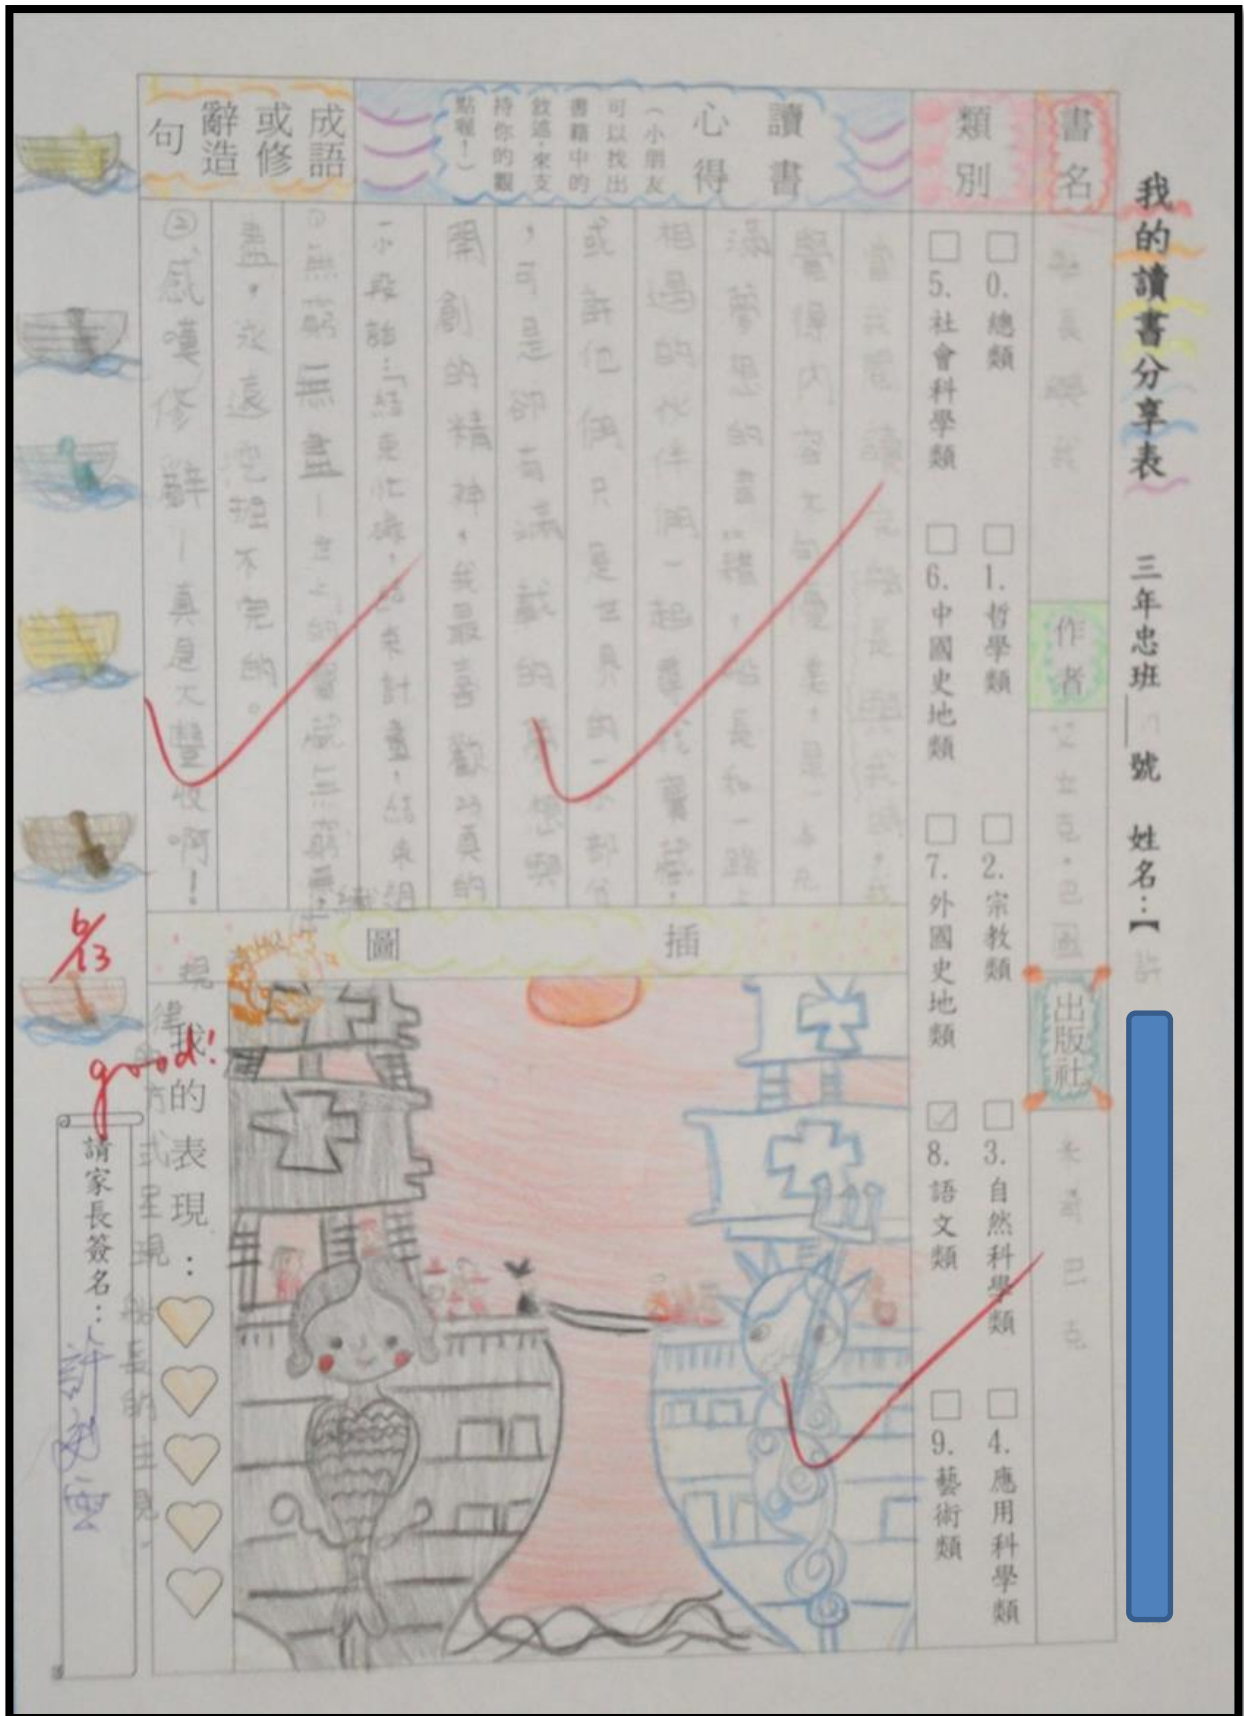 我的讀書分享表 三年忠班 號 姓名:【許
書名 船長與我 作者 艾立克‧巴圖 出版社 米奇巴克
類別
□0.總類 □1.哲學類 □2.宗教類 □3.自然科學類 □4.應用科學類
□5.社會科學類 □6.中國史地類 □7.外國史地類 ☑8.語文類 □9.藝術類
讀書心得
(小朋友可以找出書籍中的敘述,來支持你的觀點喔!)
當我看讀完船長與我時,我
覺得內容太優美,是一本充
滿夢想的書籍,船長和一路上
相遇的伙伴們一起尋找寶藏,
或許他們只是世界的一小部分
,可是卻有滿載的夢想與
開創的精神,我最喜歡的
一小段話:「結束忙碌,結束計畫,結束組織
成語或修辭造句
①無窮無盡-
盡,永遠挖不完的。
②感嘆修辭-真是大豐收啊!
插圖
規律
方式呈現船長的
我的表現:
6/13
good!
請家長簽名: